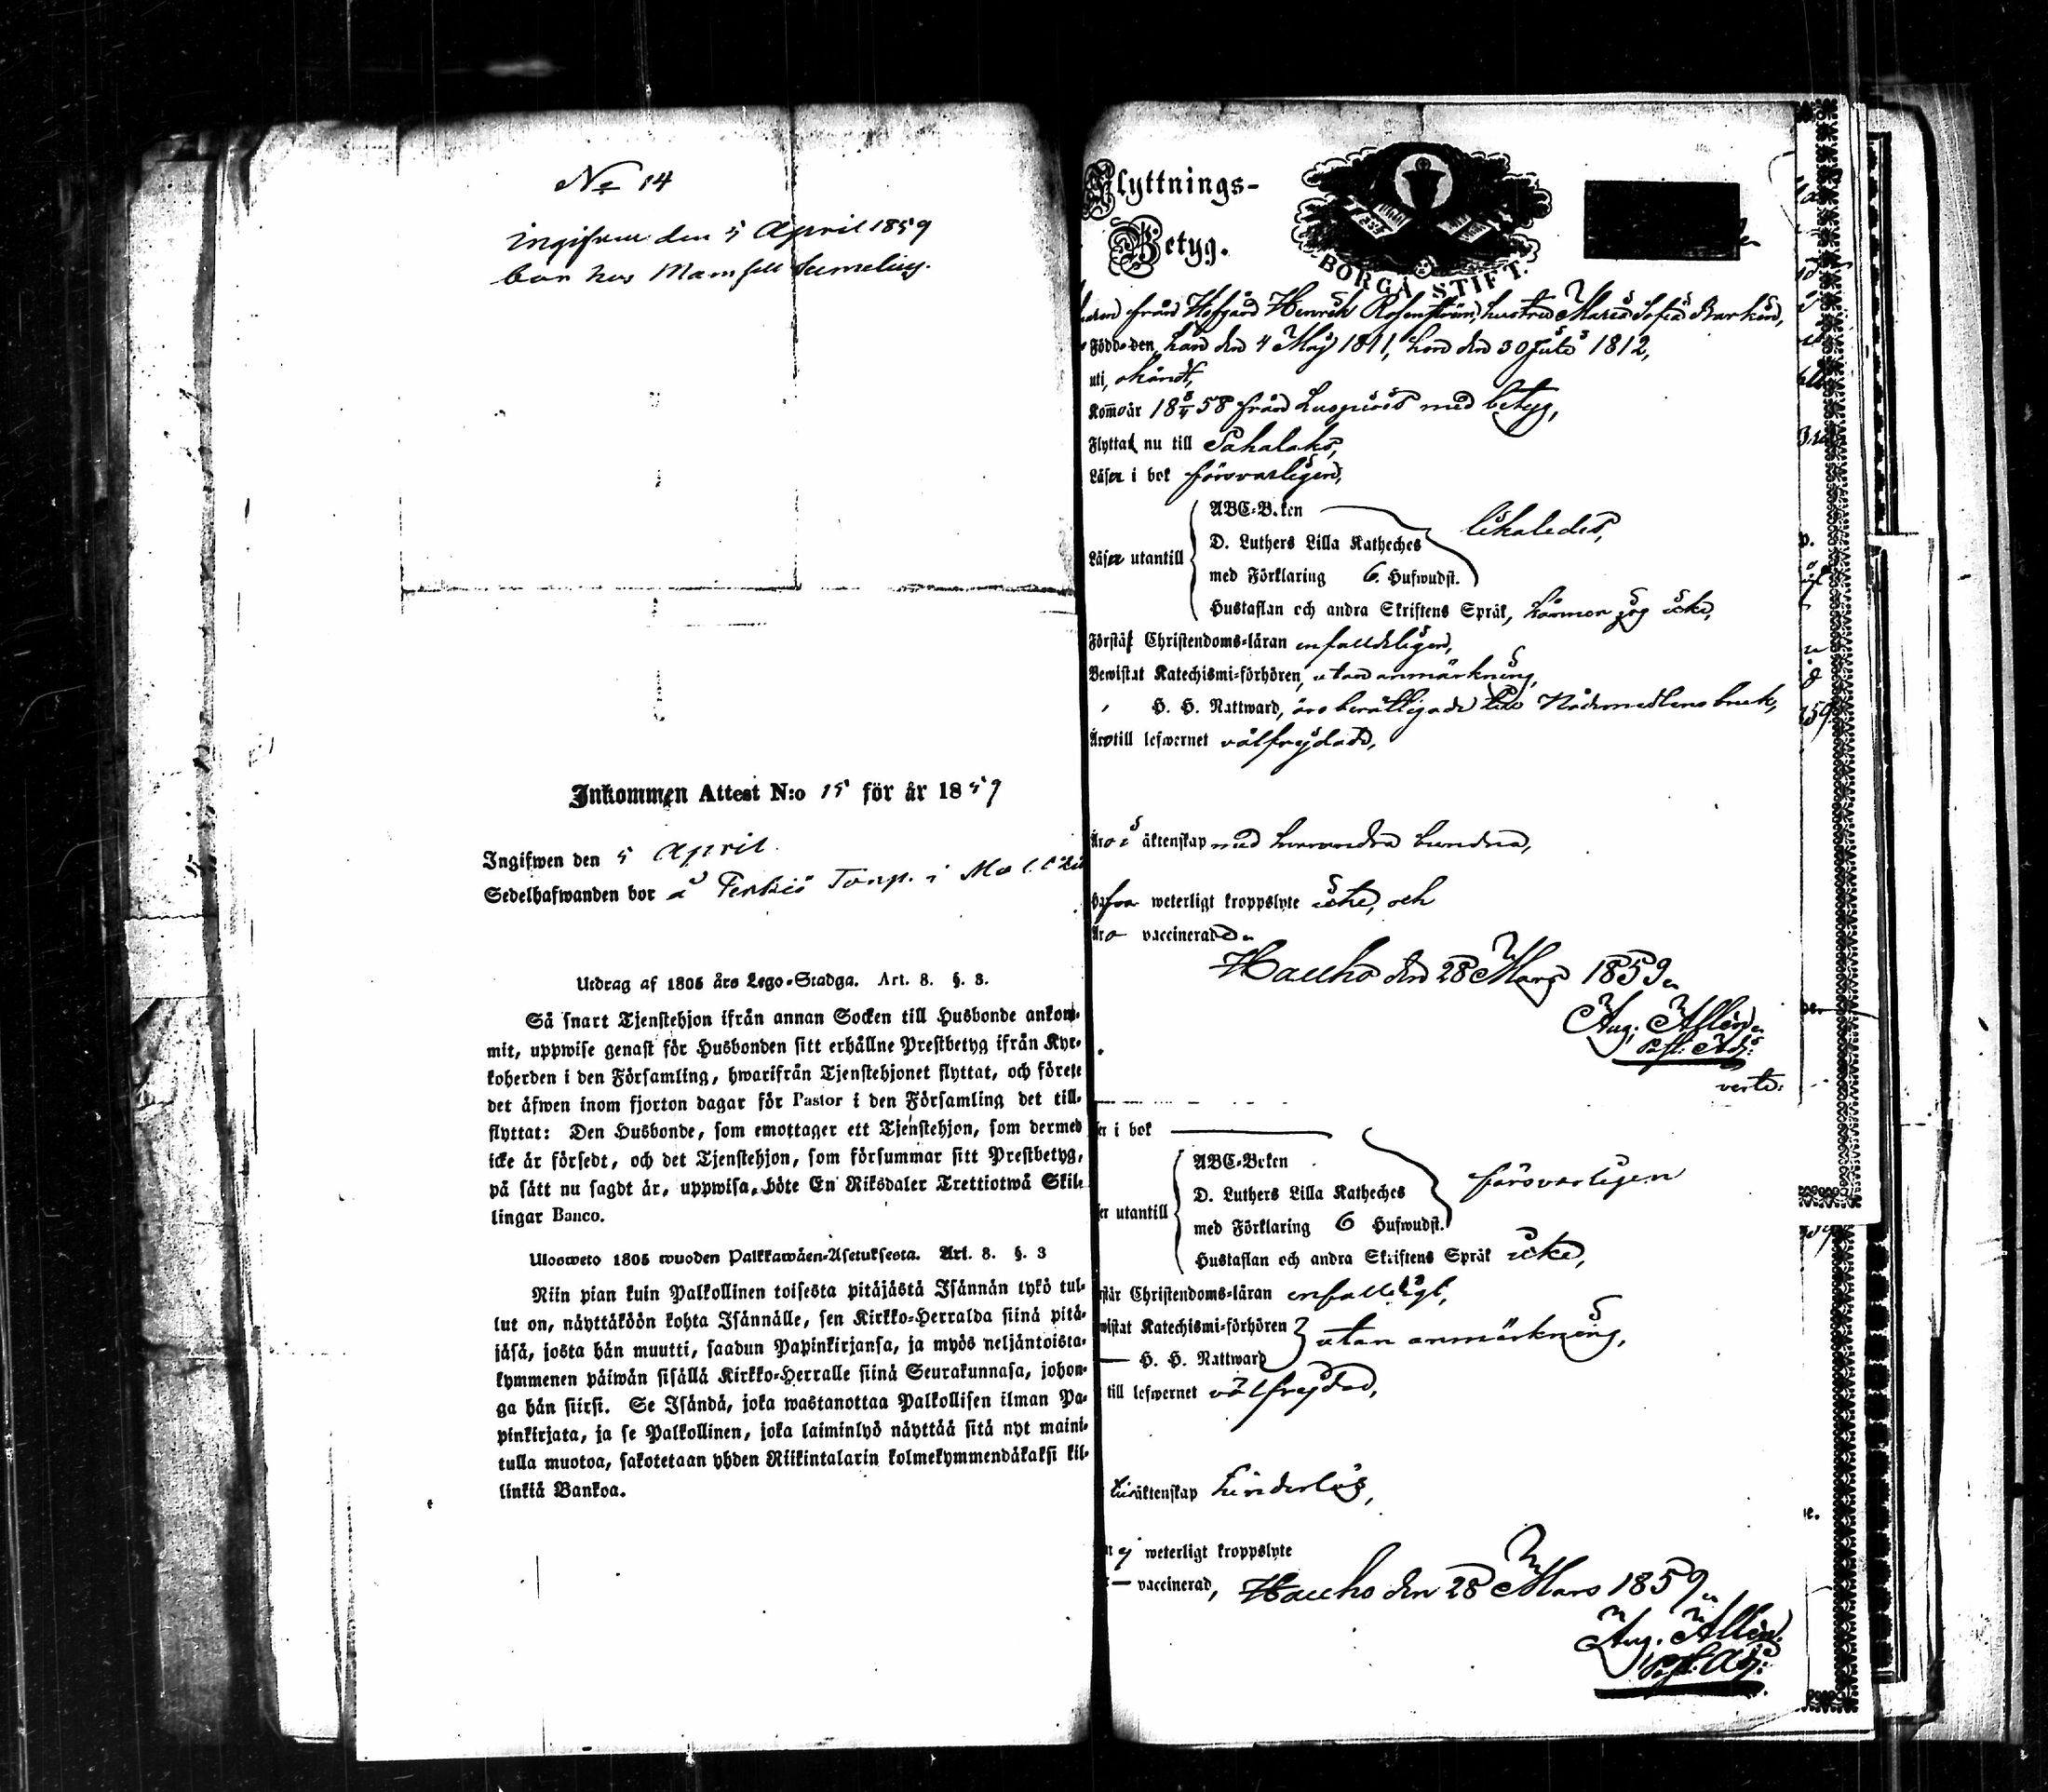 No 14
Ingifven den 5 April 1859
bor hos Mamsell Sumelius.
Inkommen Attest N:o 15 för år 1859
Ingifwen den 5 April.
Sedelhafwanden bor å Torp. i
Utdrag af 1805 års Lego-Stadga. Art. 8. §. 3.
Så snart Tjenstehjon ifrån annan Socken till Husbonde ankom-
mit, uppwise genast för Husbonden sitt erhållne Prestbetyg ifrån Kyr-
koherden i den Församling, hwarifrån Tjenstehjonet flyttat, och förete
det äfwen inom fjorton dagar för Pastor i den Församling det till-
flyttat: Den Husbonde, som emottager ett Tjenstehjon, som dermed
icke är försedt, och det Tjenstehjon, som försummar sitt Prestbetyg,
på sätt nu sagdt är, uppwisa, böte En Riksdaler Trettiotwå Skil-
lingar Banco.
Uloosweto 1805 wuoden Palkkawäen-Asetuksesta. Art. 8. §. 3
Niin pian kuin Palkollinen toisesta pitäjästä Isännän tykö tul-
lut on, näyttäköön kohta Isännälle, sen Kirkko-Herralda siinä pitä-
jäsä, josta hän muutti, saadun Papinkirjansa, ja myös neljäntoista-
kymmenen päiwän sisällä Kirkko-Herralle siinä Seurakunnasa, johon-
ga hän siirsi. Se Isändä, joka wastanottaa Palkollisen ilman Pa-
pinkirjata, ja se Palkollinen, joka laiminlyö näyttää sitä nyt maini-
tulla muotoa, sakotetaan yhden Riikintalarin kolmekymmendäkaksi kil-
linkiä Bankoa.
Flyttnings-
Betyg.
BORGÅ STIFT.
från Hofgård Henrik Rosenström, hustru Maria Sofia
Född den, han den 4 Maj 1811, hon den 30 Juli 1812,
uti, okändt,
Kom år 18 5/4 58 från Luopiois med betyg,
Flyttat nu till Sahalaks,
Läser i bok försvarligen,
ABC-Boken
D. Luthers Lilla Katheches likaledes,
Läser utantill
med Förklaring 6. Hufwudst.
Hustaflan och andra Skriftens Språk, känner jag icke,
Förstår Christendoms-läran enfalldeligen,
Bewistat Katechismi-förhören, utan anmärkning,
H. H. Nattward, äro berättigade till Nådemedlens bruk,
Äro till lefwernet välfrejdade,
Äro i äktenskap med hvarandra bundna,
Hafva weterligt kroppslyte icke, och
Äro vaccinerade.
Hauho den 28 Mars 1859.
Aug. Ahlén.
Past. Adj:
verte:
er i bok
ABC-Boken
D. Luthers Lilla Katheches försvarligen
er utantill
med Förklaring 6 Hufwudst.
Hustaflan och andra Skriftens Språk icke,
står Christendoms-läran enfalldeligt,
wistat Katechismi-förhören
utan anmärkning,
H. H. Nattward
till lefwernet välfrejdad,
till äktenskap hinderlös,
ej weterligt kroppslyte
vaccinerad, Hauho den 28 Mars 1859.
Aug. Ahlén.
Past. Adj: